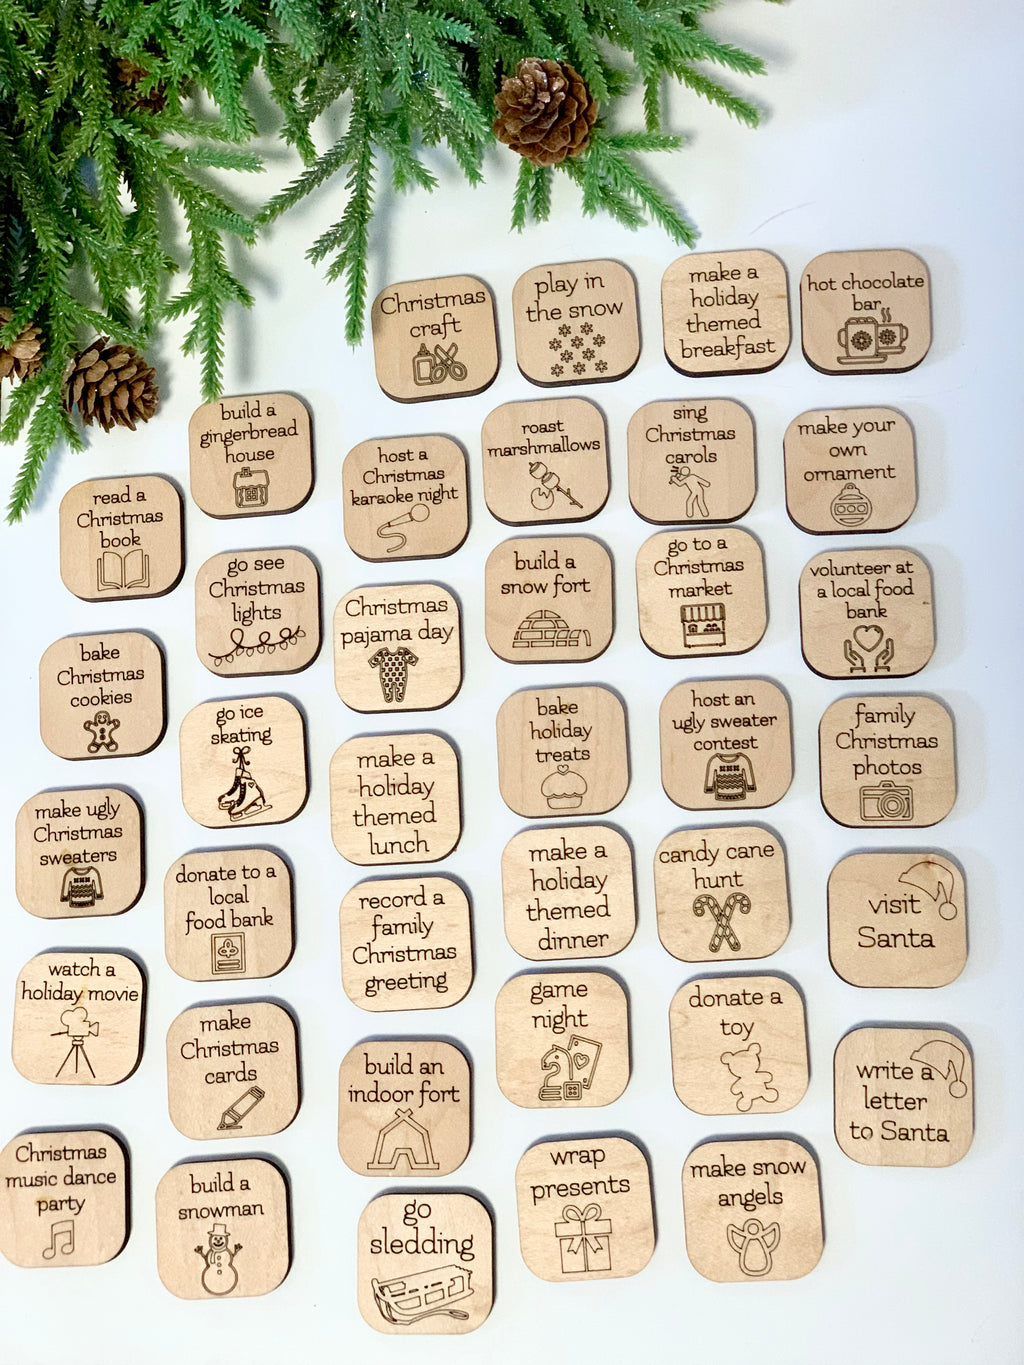 Christmas
craft
play in
the snow
make a
holiday
themed
breakfast
hot chocolate
bar
build a
gingerbread
house
host a
Christmas
karaoke night
roast
marshmallows
sing
Christmas
carols
make your
own
ornament
read a
Christmas
book
go see
Christmas
lights
Christmas
pajama day
build a
snow fort
go to a
Christmas
market
volunteer at
a local food
bank
bake
Christmas
cookies
go ice
skating
make a
holiday
themed
lunch
bake
holiday
treats
host an
ugly sweater
contest
family
Christmas
photos
make ugly
Christmas
sweaters
donate to a
local
food bank
record a
family
Christmas
greeting
make a
holiday
themed
dinner
candy cane
hunt
visit
Santa
watch a
holiday movie
make
Christmas
cards
build an
indoor fort
game
night
donate a
toy
write a
letter
to Santa
Christmas
music dance
party
build a
snowman
go
sledding
wrap
presents
make snow
angels